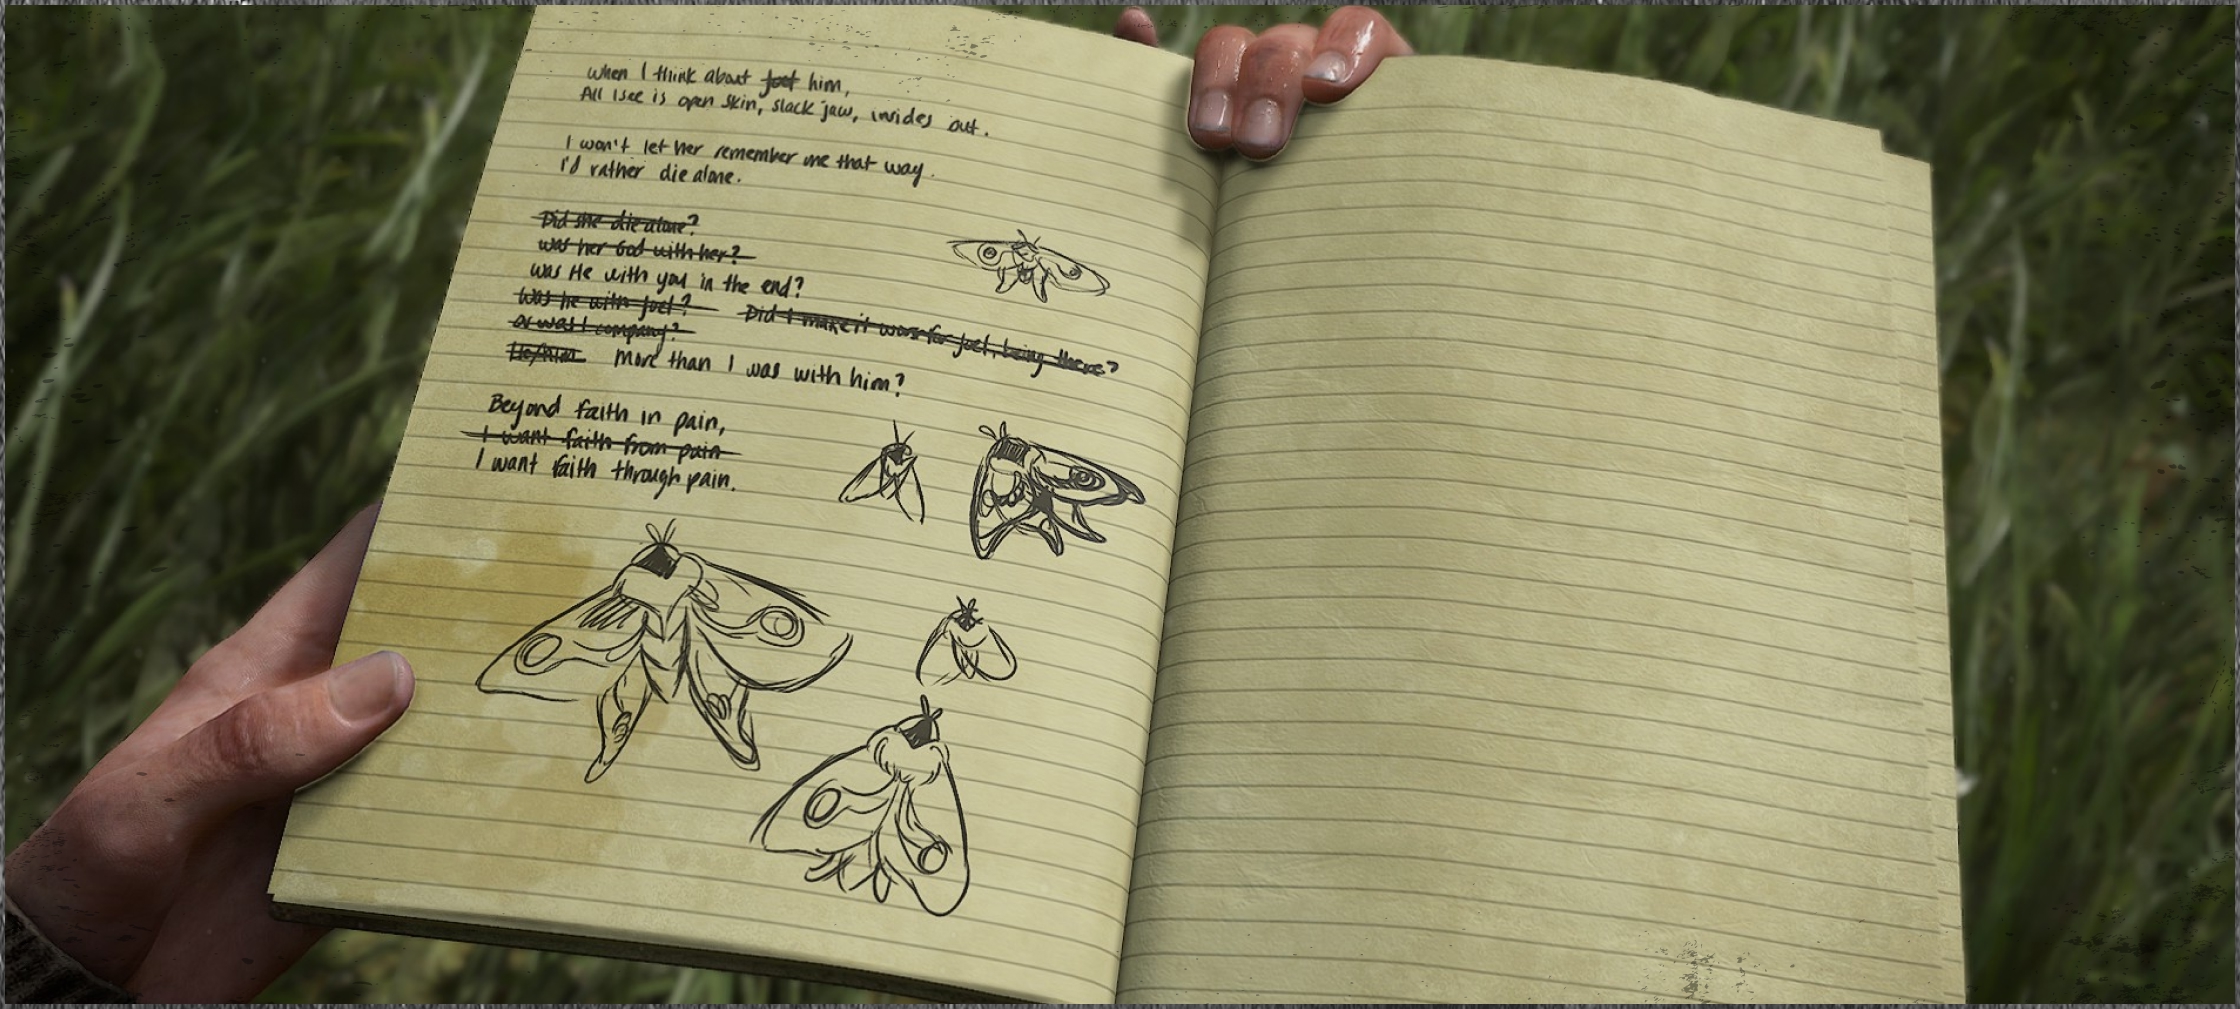 when I think about Joel him,
All I see is open skin, slack jaw, insides out.
I won't let her remember me that way.
I'd rather die alone.
Did she die alone?
was her God with her?
was He with you in the end?
Was he with Joel?
Did I make it worse for Joel, being there?
or was I company?
He/him more than I was with him?
Beyond faith in pain,
I want faith from pain
I want faith through pain.